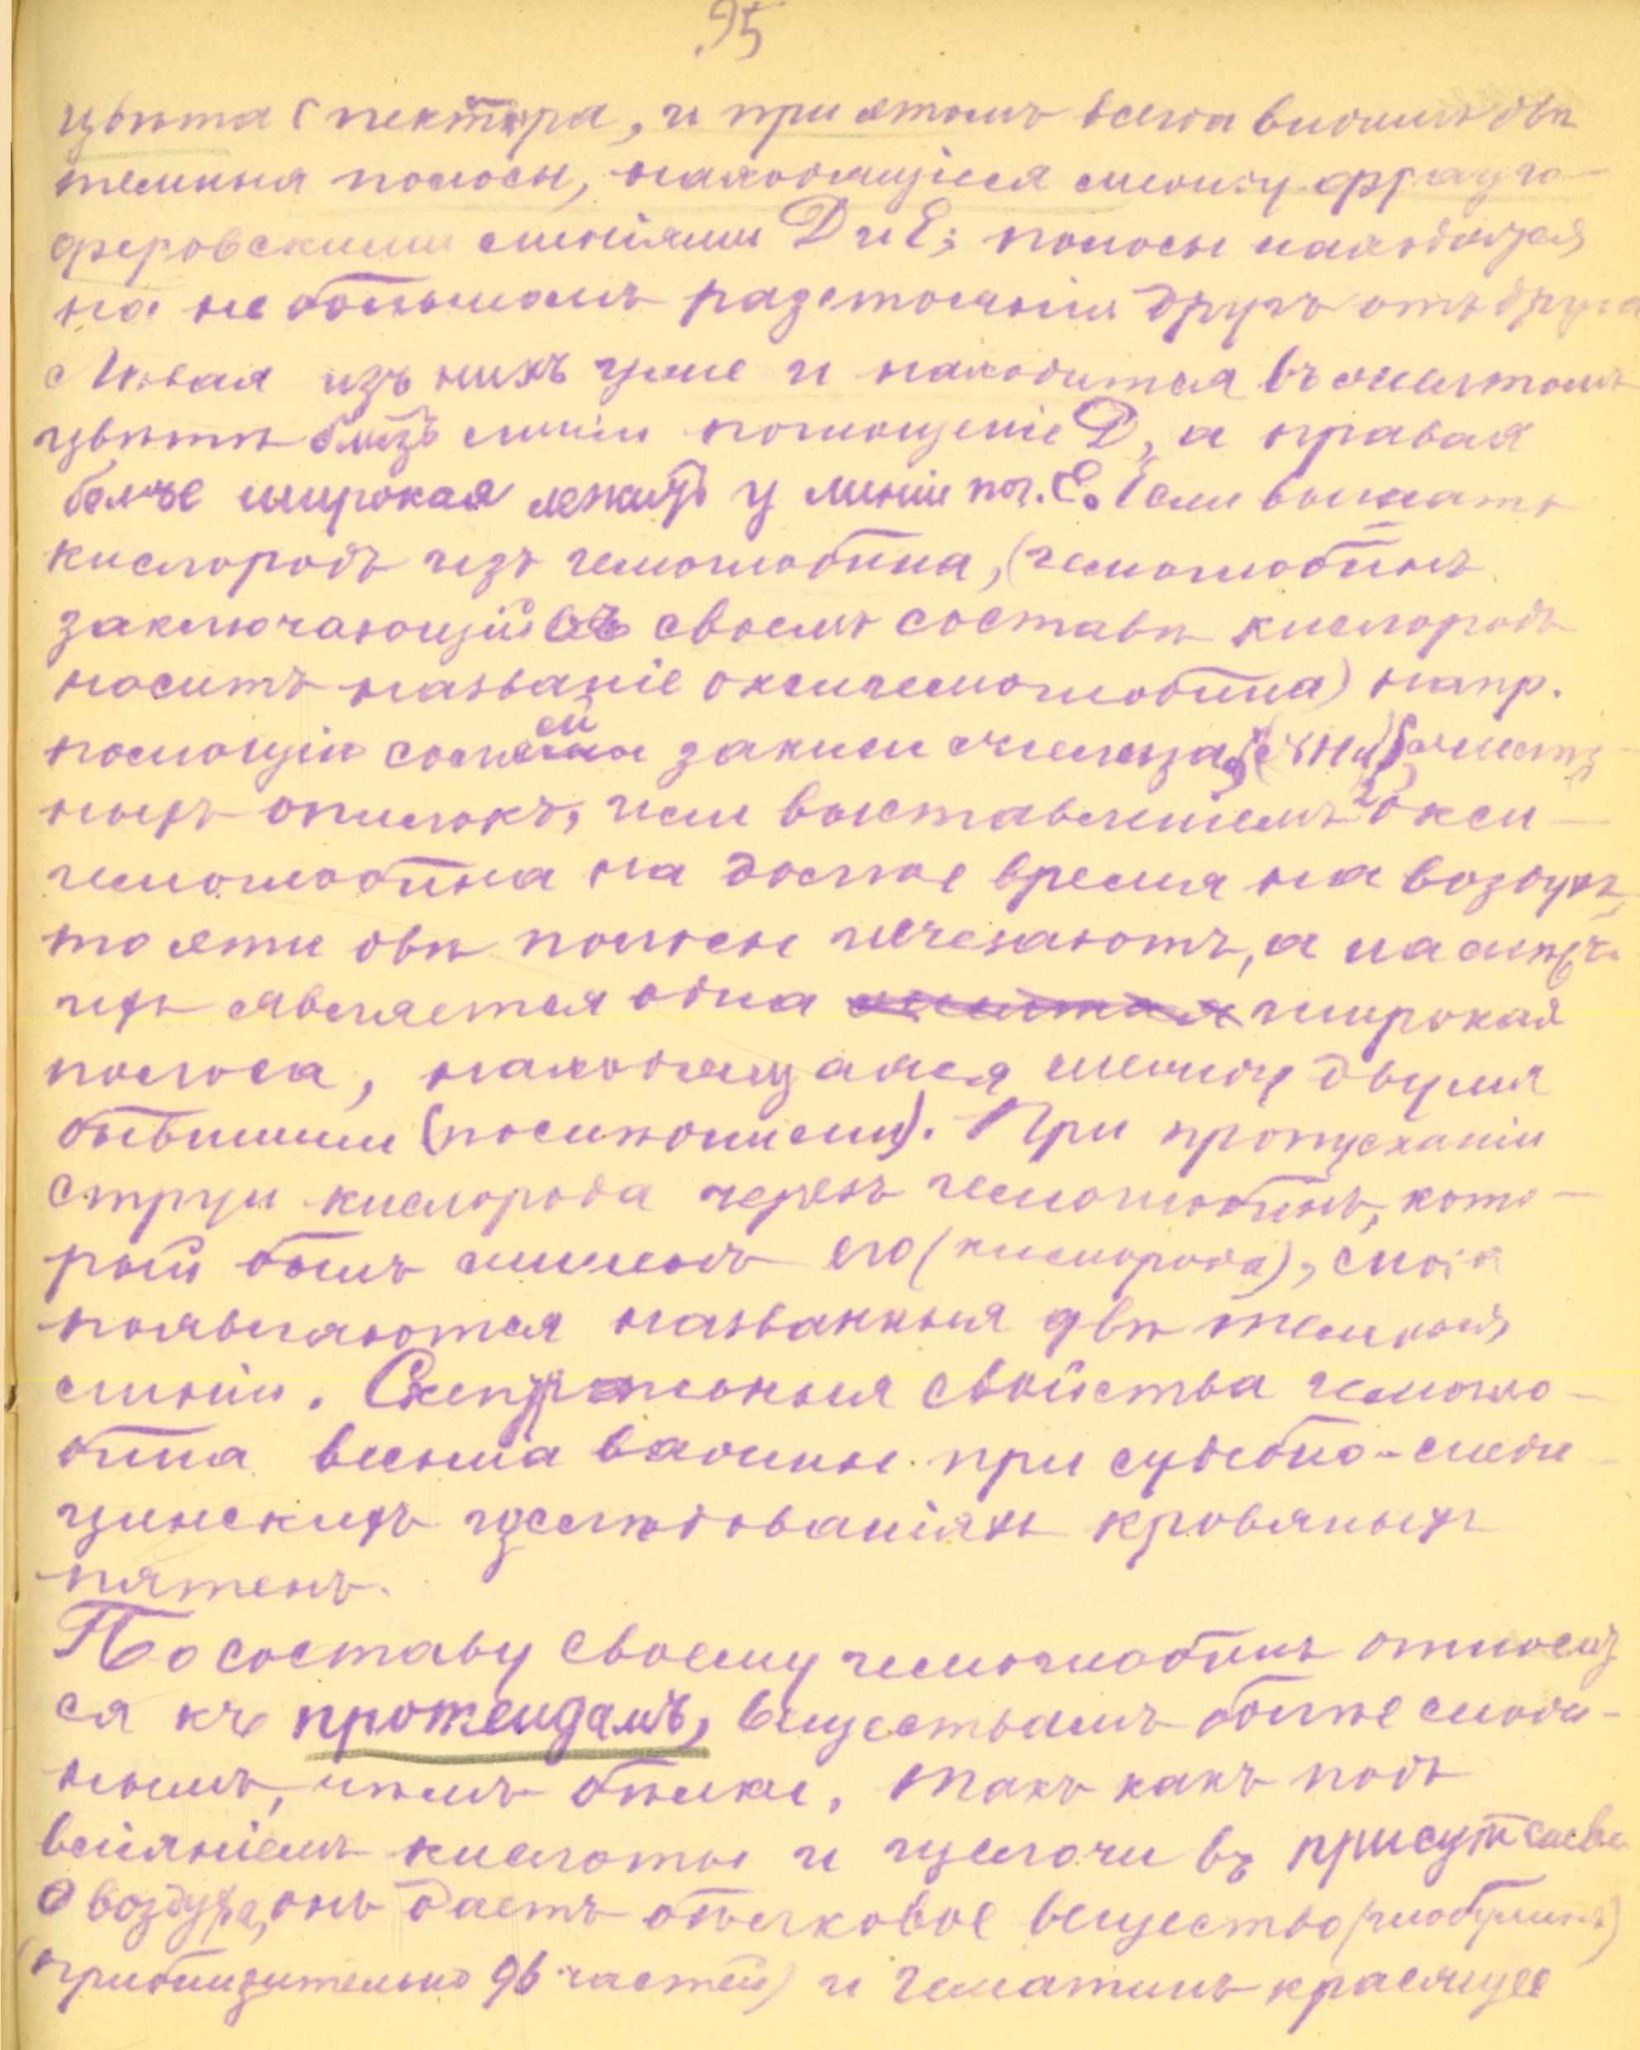 95
цвѣта спектра, и при этомъ всегда видимъ двѣ
темныя полосы, находящіеся между фрауго-
феровскими линіями D и E; полосы находятся
на небольшомъ разстояніи другъ отъ друга
Лѣвая изъ нихъ уже и находится въ желтомъ
цвѣтѣ близъ линіи поглощеніе D, а правая
более широкая лежитъ у линіи пог. E. Если выгнать
кислородъ изъ гемоглобина, (гемоглобинъ
заключающій въ своемъ составѣ кислородъ
носитъ названіе оксигемоглобина) напр.
помощію солей закиси желѣза,
ныхъ опилокъ, или выставленіемъ окси-
гемоглобина на долгое время на воздухъ,
то эти двѣ полосы исчезаютъ, а на мѣсто
ихъ является одна широкая
полоса, находящаяся между двумя
бывшими (посинѣлыми). При пропусканіи
струи кислорода черезъ гемоглобинъ, кото-
рый былъ лишенъ его (кислорода), снова
появляются названныя двѣ темныя
линіи. Спектральныя свойства гемогло-
бина весьма важны при судебно-меди
цинскихъ изслѣдованіяхъ кровяныхъ
пятенъ.
По составу своему гемоглобинъ относит
ся къ протеидамъ, веществамъ болѣе слож-
нымъ, чѣмъ бѣлки, такъ какъ подъ
вліяніемъ кислоты и щелочи въ присутствіи
воздуха, онъ даетъ бѣлковое вещество (глобулинъ)
(приблизительно 96 частей) и гематинъ красящее